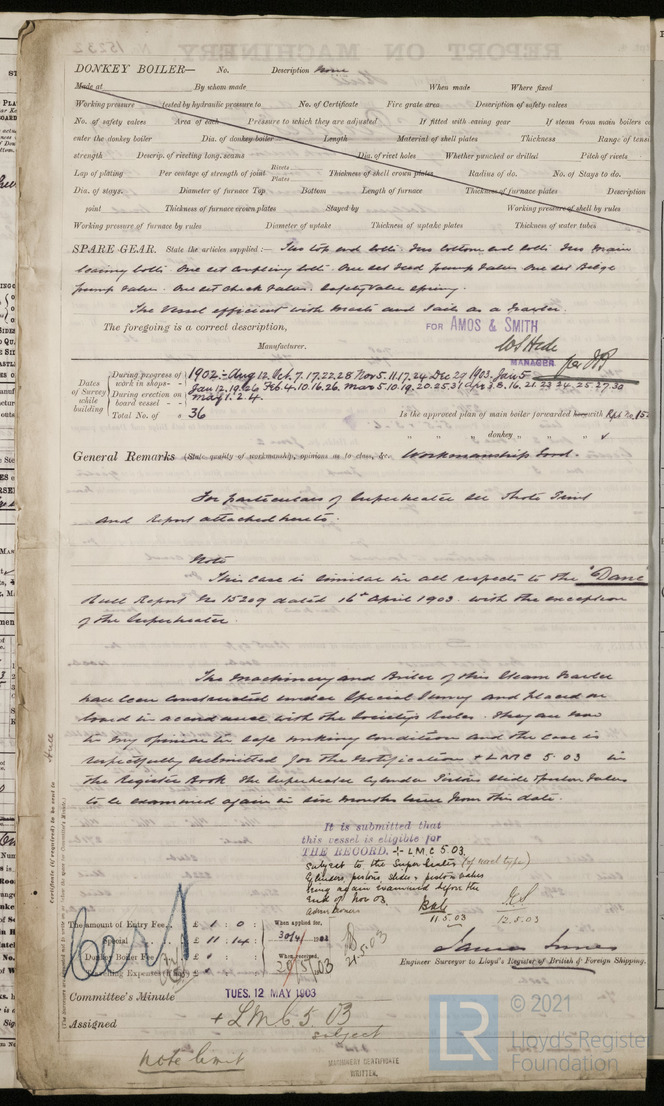 DONKEY BOILER— No. Description None
Made at By whom made When made Where fixed
Working pressure tested by hydraulic pressure to No. of Certificate Fire grate area Description of safety valves
No. of safety valves Area of each Pressure to which they are adjusted If fitted with easing gear If steam from main boilers c
enter the donkey boiler Dia. of donkey boiler Length Material of shell plates Thickness Range of tensi
strength Descrip. of riveting long. seams Dia. of rivet holes Whether punched or drilled Pitch of rivets
Lap of plating Per centage of strength of joint Rivets Plates Thickness of shell crown plates Radius of do. No. of Stays to do.
Dia. of stays. Diameter of furnace Top Bottom Length of furnace Thickness of furnace plates Description
joint Thickness of furnace crown plates Stayed by Working pressure of shell by rules
Working pressure of furnace by rules Diameter of uptake Thickness of uptake plates Thickness of water tubes
SPARE GEAR. State the articles supplied:— Two top end bolts. Two bottom end bolts. Two main
bearing bolts. One set coupling bolts. One set feed pump valves One set Bilge
pump valves. One set check valves. Safety valve spring.
The vessel efficient with masts and sails as a trawler.
The foregoing is a correct description,
FOR AMOS & SMITH
Manufacturer.
MANAGER
Dates of Survey while building
During progress of work in shops - - 1902:- Aug 12. Oct. 7. 17. 22. 28. Nov 5. 11. 17. 24. Dec 29. 1903. Jan 5
During erection on board vessel - - Jan 12. 19. 26. Feb 4. 10. 16. 26. Mar 5. 10. 19. 20. 25. 31. Apr 3. 8. 16. 21. 23. 24. 25. 27. 30
May 1. 2. 4.
Total No. of 36
Is the approved plan of main boiler forwarded herewith Rpt. No. 15
" " " donkey " " "
General Remarks (State quality of workmanship, opinions as to class, &c. Workmanship Good.
For particulars of Superheater see Photo Print
and Report attached hereto.
Note
This case is similar in all respects to the "Dane"
Hull Report No 15209 dated 16th April 1903. with the exception
of the Superheater.
The Machinery and Boiler of this Steam Trawler
have been constructed under Special Survey and placed on
board in accordance with the Society's Rules. They are now
in my opinion in safe working condition and the case is
respectfully submitted for the Notification + LMC 5.03 in
the Register Book the Superheater Cylinder Pistons Slide & piston valves
to be examined again in six months time from this date.
It is submitted that
this vessel is eligible for
THE RECORD. + L.M.C 5.03.
Subject to the Superheater (of novel type)
Cylinders, pistons, slide & piston valves
being again examined before the
end of Nov 03.
11.5.03 12.5.03
Certificate (if required) to be sent to Hull
The amount of Entry Fee.. £ 1 : 0 :
Special £ 11 : 14 :
Donkey Boiler Fee £ : :
Travelling Expenses (if any) £ : :
When applied for,
30/4/1903
When received,
20/5/03
21.5.03
Cert
James Innes
Engineer Surveyor to Lloyd's Register of British & Foreign Shipping.
Committee's Minute TUES. 12 MAY 1903
Assigned + LMC 5.03
subject
note limit
MACHINERY CERTIFICATE
WRITTEN.
LR
© 2021
Lloyd's Registe
Foundation